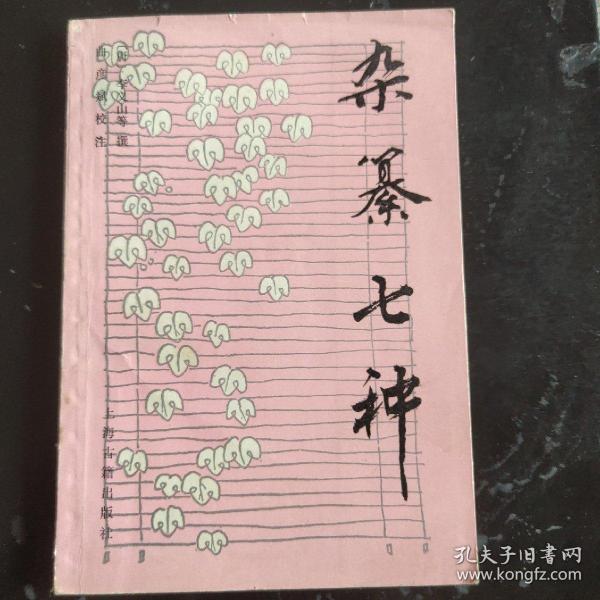 杂纂七种
唐 李义山等 撰
曲彦斌校注
上海古籍出版社
孔夫子旧书网
www.kongfz.com